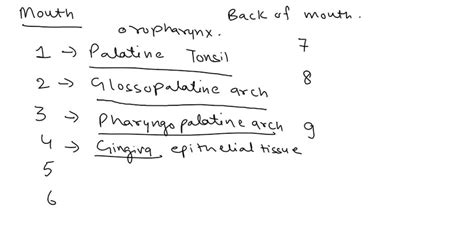 Mouth
oropharynx.
Back of mouth.
1 → Palatine Tonsil
7
2 → Glossopalatine arch
8
3 → Pharyngopalatine arch
9
4 → Gingiva epithelial tissue
5
6